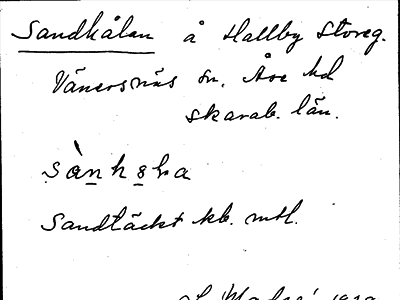 Sandhålan å Hallby Storeg.
Vänersnäs sn, Åse hd
skarab. län.
sànhƨha
Sandtäckt kb. mtl.